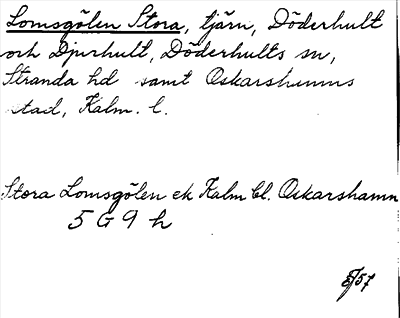 Lomsgölen Stora, tjärn, Döderhult
och Djurhult, Döderhults sn,
Stranda hd samt Oskarshamns
stad, Kalm. l.
Stora Lomsgölen ek Kalm bl. Oskarshamn
5 G 9 h
8/57